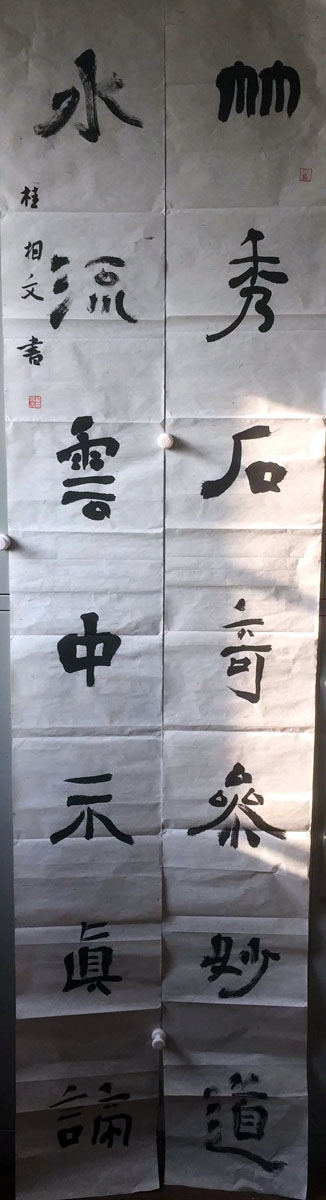 竹秀石奇參妙道
水流雲中示眞諦
桂相文書